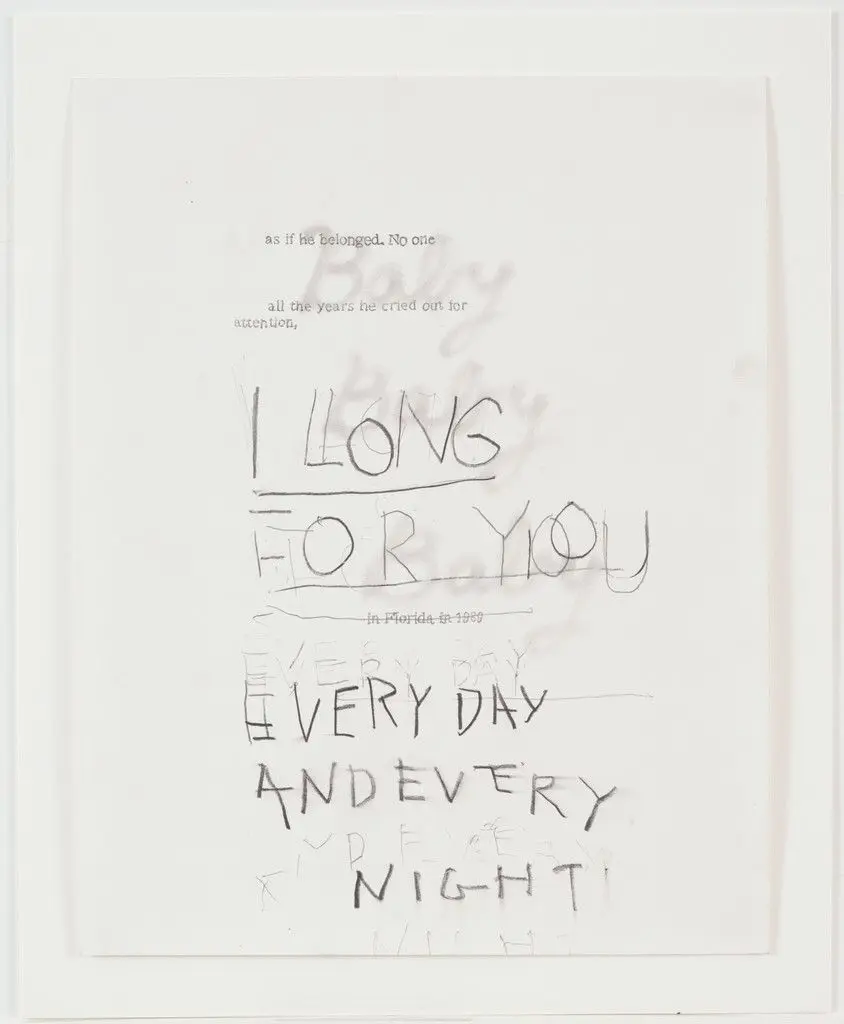 as if he belonged. No one
Baby
all the years he cried out for
attention,
Baby
I LONG
FOR YOU
Baby
in Florida in 1989
EVERY DAY
EVERY DAY
AND EVERY
ND EVERY
NIGHT!
NIGH